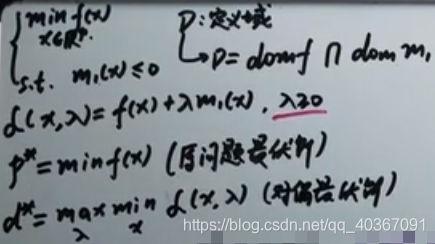 min f(x) D: 定义域
x∈ℝᵖ
s.t. m₁(x) ≤ 0 ↳ D = dom f ∩ dom m₁
ℒ(x, λ) = f(x) + λ m₁(x), λ≥0
p* = min f(x) (原问题最优解)
d* = max min ℒ(x, λ) (对偶最优解)
λ x
https://blog.csdn.net/qq_40367091